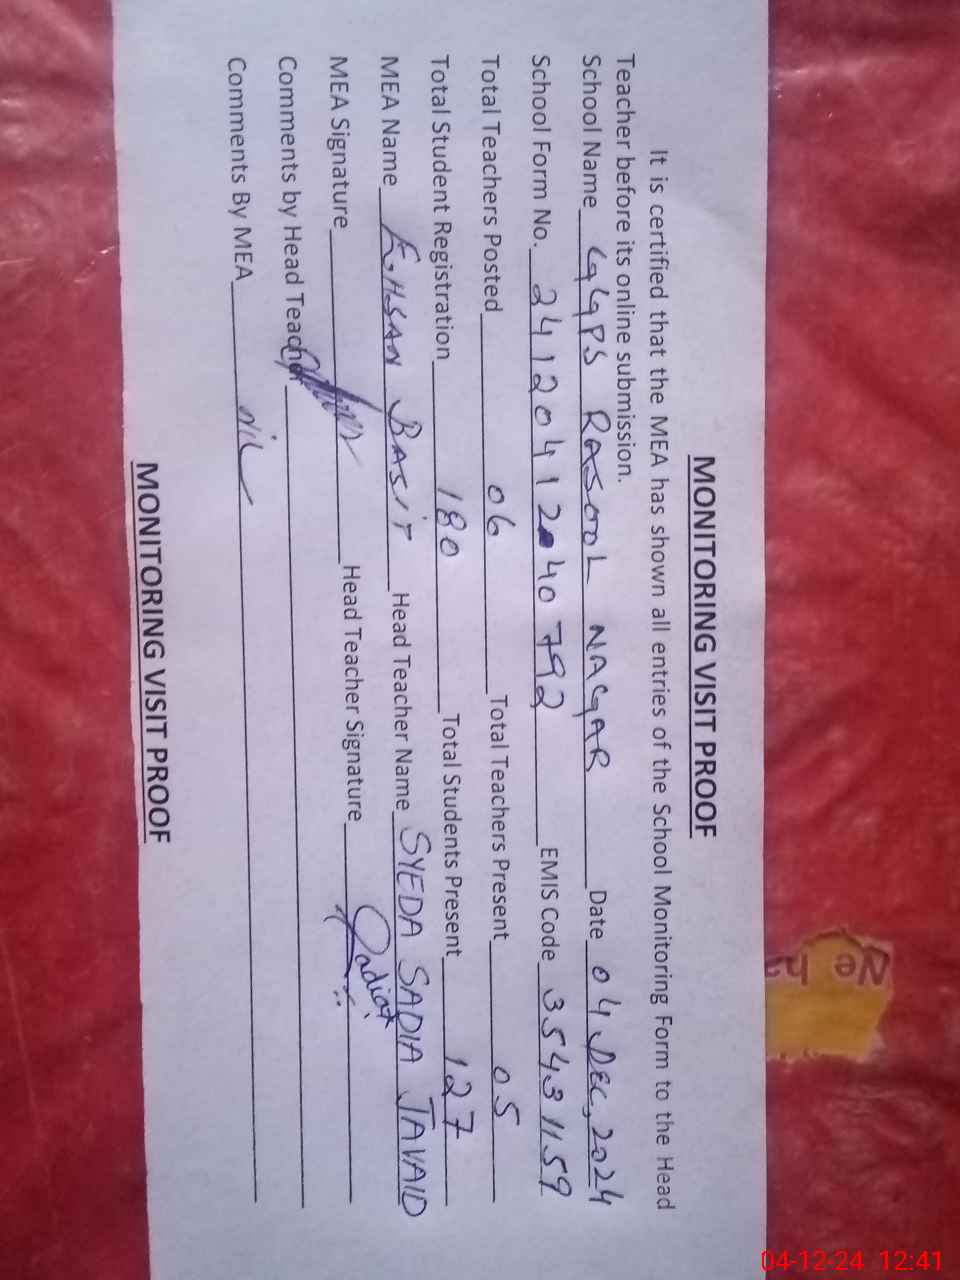 MONITORING VISIT PROOF
It is certified that the MEA has shown all entries of the School Monitoring Form to the Head
Teacher before its online submission.
School Name GGPS RASOOL NAGAR Date 04 DEC, 2024
School Form No. 24120412040792 EMIS Code 35431159
Total Teachers Posted 06 Total Teachers Present 05
Total Student Registration 180 Total Students Present 127
MEA Name EHSAN BASIT Head Teacher Name SYEDA SADIA JAVAID
MEA Signature Head Teacher Signature Sadia
Comments by Head Teacher
Comments By MEA Nil
MONITORING VISIT PROOF
Ne
ha
04-12-24 12:41